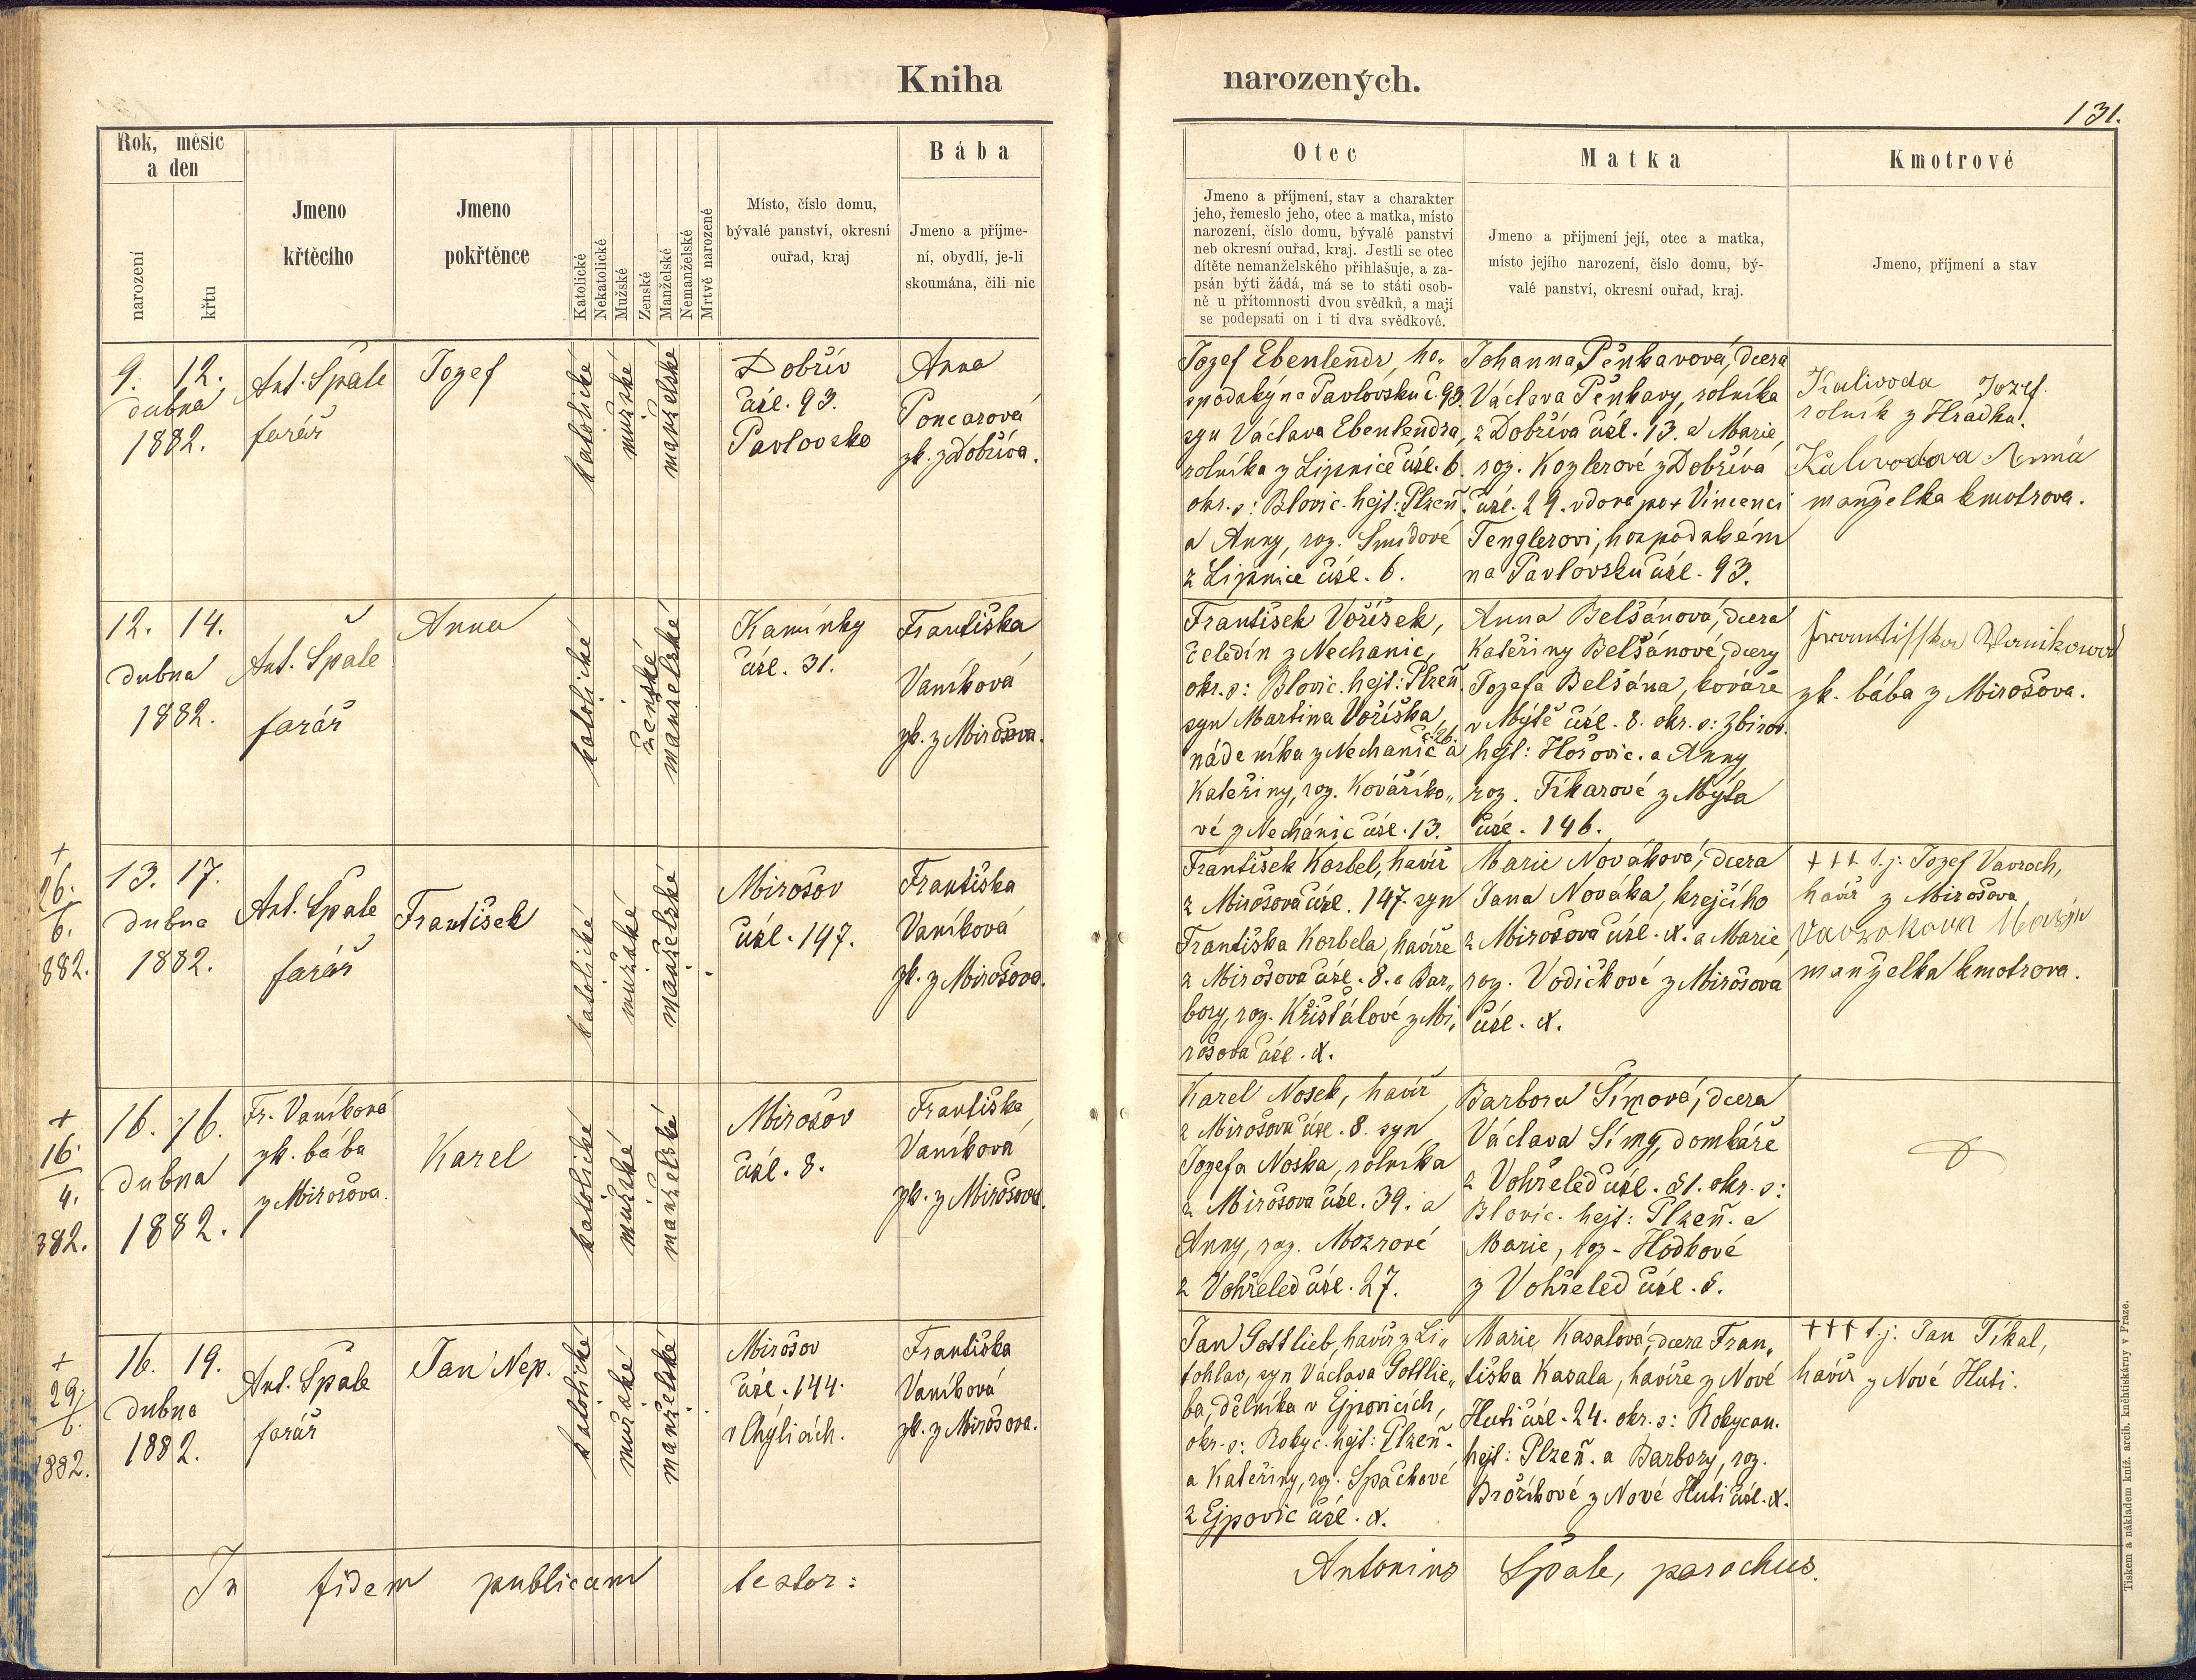 Kniha narozených.
131.
Rok, měsíc
a den
narození
křtu
Jmeno
křtěcího
Jmeno
pokřtěnce
Katolické
Nekatolické
Mužské
Ženské
Manželské
Nemanželské
Mrtvě narozené
Místo, číslo domu,
bývalé panství, okresní
ouřad, kraj
Bába
Jmeno a příjme-
ní, obydlí, je-li
skoumána, čili nic
Otec
Jmeno a příjmení, stav a charakter
jeho, řemeslo jeho, otec a matka, místo
narození, číslo domu, bývalé panství
neb okresní ouřad, kraj. Jestli se otec
dítěte nemanželského přihlašuje, a za-
psán býti žádá, má se to státi osob-
ně u přítomnosti dvou svědků, a mají
se podepsati on i ti dva svědkové.
Matka
Jmeno a přijmení její, otec a matka,
místo jejího narození, číslo domu, bý-
valé panství, okresní ouřad, kraj.
Kmotrové
Jmeno, příjmení a stav
9. 12.
dubna
1882.
Ant. Špale
farář
Jozef
katolické
mužské
manželské
Dobřív
čísl. 93.
Pavlovsko
Anna
Poncarová
zk. z Dobříva.
Jozef Ebenlendr, ho„
spodský na Pavlovsku č. 93.
syn Václava Ebenlendra,
rolníka z Lipnice čísl. 6.
okr. s: Blovic. hejt: Plzeň.
a Anny, roz. Šmídové
z Lipnice čísl. 6.
Johanna Pěnkavová, dcera
Václava Pěnkavy, rolníka
z Dobříva čísl. 13. a Marie,
roz. Kozlerové z Dobříva
čísl. 29. vdova po + Vincenci
Tenglerovi, hospodském
na Pavlovsku čísl. 93.
Kalivoda Jozef.
rolník z Hrádku.
Kalivodova Anna
manželka kmotrova.
12. 14.
dubna
1882.
Ant. Špale
farář
Anna
katolické
ženské
manželské
Kamínky
čísl. 31.
Františka
Vaníková
zk. z Mirošova.
František Voříšek,
čeledín z Nechanic,
okr. s: Blovic. hejt: Plzeň.
syn Martina Voříška,
nádeníka z Nechanic č. 26. a
Kateřiny, roz. Kovářiko„
vé z Nechánic čísl. 13.
Anna Belšánová, dcera
Kateřiny Belšánové, dcery
Jozefa Belšána, kováře
v Mýtě čísl. 8. okr. s: Zbirov.
hejt: Hořovic. a Anny
roz. Fikarové z Mýta
čísl. 146.
Frantisska Wanikowa
zk. bába z Mirošova.
+
26.
6.
882.
13. 17.
dubna
1882.
Ant. Špale
farář
František
katolické
mužské
manželské
Mirošov
čísl. 147.
Františka
Vaníková
zk. z Mirošova.
František Korbel, havíř
z Mirošova čísl. 147. syn
Františka Korbela, havíře
z Mirošova čísl. 8. a Bar„
bory, roz. Křišťálové z Mi„
rošova čísl. X.
Marie Nováková, dcera
Jana Nováka, krejčího
z Mirošova čísl. X. a Marie
roz. Vodičkové z Mirošova
čísl. X.
+++ t. j: Jozef Vavroch,
havíř z Mirošova
manželka kmotrova.
+
16.
4.
882.
16. 16.
dubna
1882.
Fr. Vaníková
zk. bába
z Mirošova.
Karel
katolické
mužské
manželské
Mirošov
čísl. 8.
Františka
Vaníková
zk. z Mirošova.
Karel Nosek, havíř
z Mirošova čísl. 8. syn
Jozefa Noska, rolníka
z Mirošova čísl. 39. a
Anny, roz. Mozrové
z Vohřeled čísl. 27.
Barbora Šímová, dcera
Václava Šímy, domkáře
z Vohřeled čísl. 51. okr. s:
Blovic. hejt: Plzeň. a
Marie, roz. Hodkové
z Vohřeled čísl. 5.
+
29.
6.
1882.
16. 19.
dubna
1882.
Ant. Špale
farář
Jan Nep.
katolické
mužské
manželské
Mirošov
čísl. 144.
v Chýlicích.
Františka
Vaníková
zk. z Mirošova.
Jan Gottlieb, havíř z Li„
tohlav, syn Václava Gottlie„
ba, dělníka v Ejpovicích,
okr. s: Rokyc. hejt: Plzeň.
a Kateřiny, roz. Špačkové
z Ejpovic čísl. X.
Marie Kasalová, dcera Fran„
tiška Kasala, havíře z Nové
Huti čísl. 24. okr. s: Rokycan.
hejt: Plzeň. a Barbory, roz.
Brožíkové z Nové Huti čísl. X.
+++ t. j: Jan Tíkal,
havíř z Nové Huti.
In fidem publicam testor:
Antonius Špale, parochus.
Tiskem a nákladem kníž. arcib. kněhtiskárny v Praze.